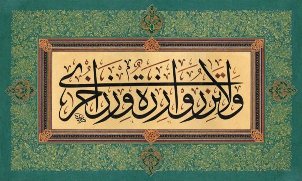 ولا تزر وازرة وزر اخرى